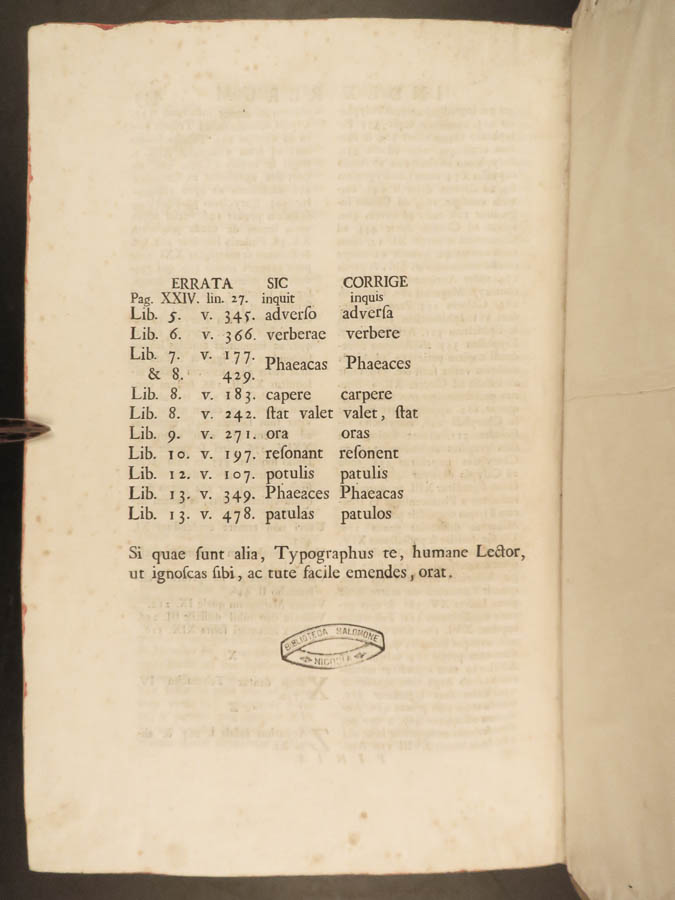 ERRATA SIC CORRIGE
Pag. XXIV. lin. 27. inquit inquis
Lib. 5. v. 345. adverſo adverſa
Lib. 6. v. 366. verberae verbere
Lib. 7. v. 177.
Phaeacas Phaeaces
& 8. 429.
Lib. 8. v. 183. capere carpere
Lib. 8. v. 242. ſtat valet valet, ſtat
Lib. 9. v. 271. ora oras
Lib. 10. v. 197. reſonant reſonent
Lib. 12. v. 107. potulis patulis
Lib. 13. v. 349. Phaeaces Phaeacas
Lib. 13. v. 478. patulas patulos
Si quae ſunt alia, Typographus te, humane Lector,
ut ignoſcas ſibi, ac tute facile emendes, orat.
BIBLIOTECA SALOMONE